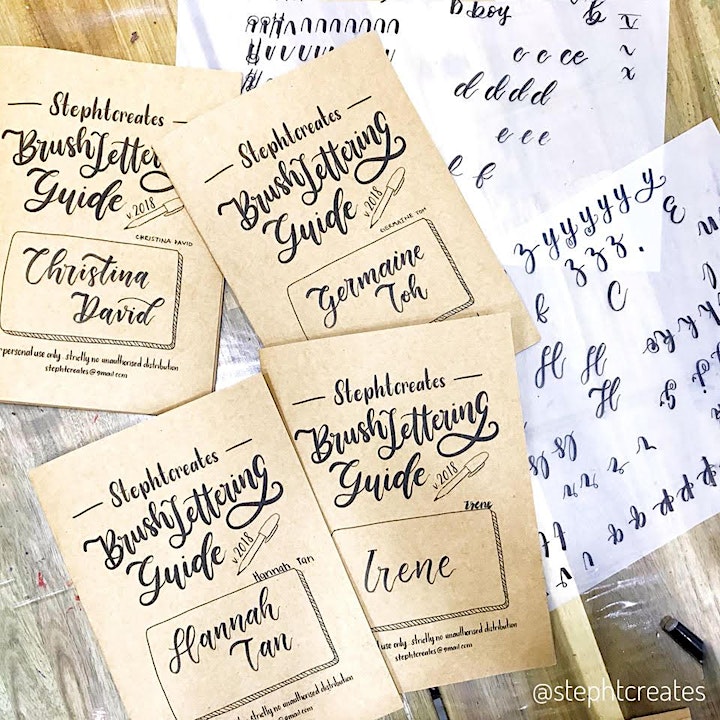 — Stephtcreates —
Brush Lettering
Guide
v.2018
CHRISTINA DAVID
Christina
David
personal use only. strictly no unauthorised distribution
stephtcreates@gmail.com
— Stephtcreates —
Brush Lettering
Guide
v.2018
GERMAINE TOH
Germaine
Toh
— Stephtcreates —
Brush Lettering
Guide
v.2018
Hannah Tan
Hannah
Tan
use only. strictly no unauthorised distribution
stephtcreates@gmail.com
— Stephtcreates —
Brush Lettering
Guide
v.2018
Irene
Irene
use only. strictly no unauthorised distribution
stephtcreates@gmail.com
boy
c c ce
d d d d d
e e e
b f
z y y y y y y
z z z .
C
H H
H
@stephtcreates